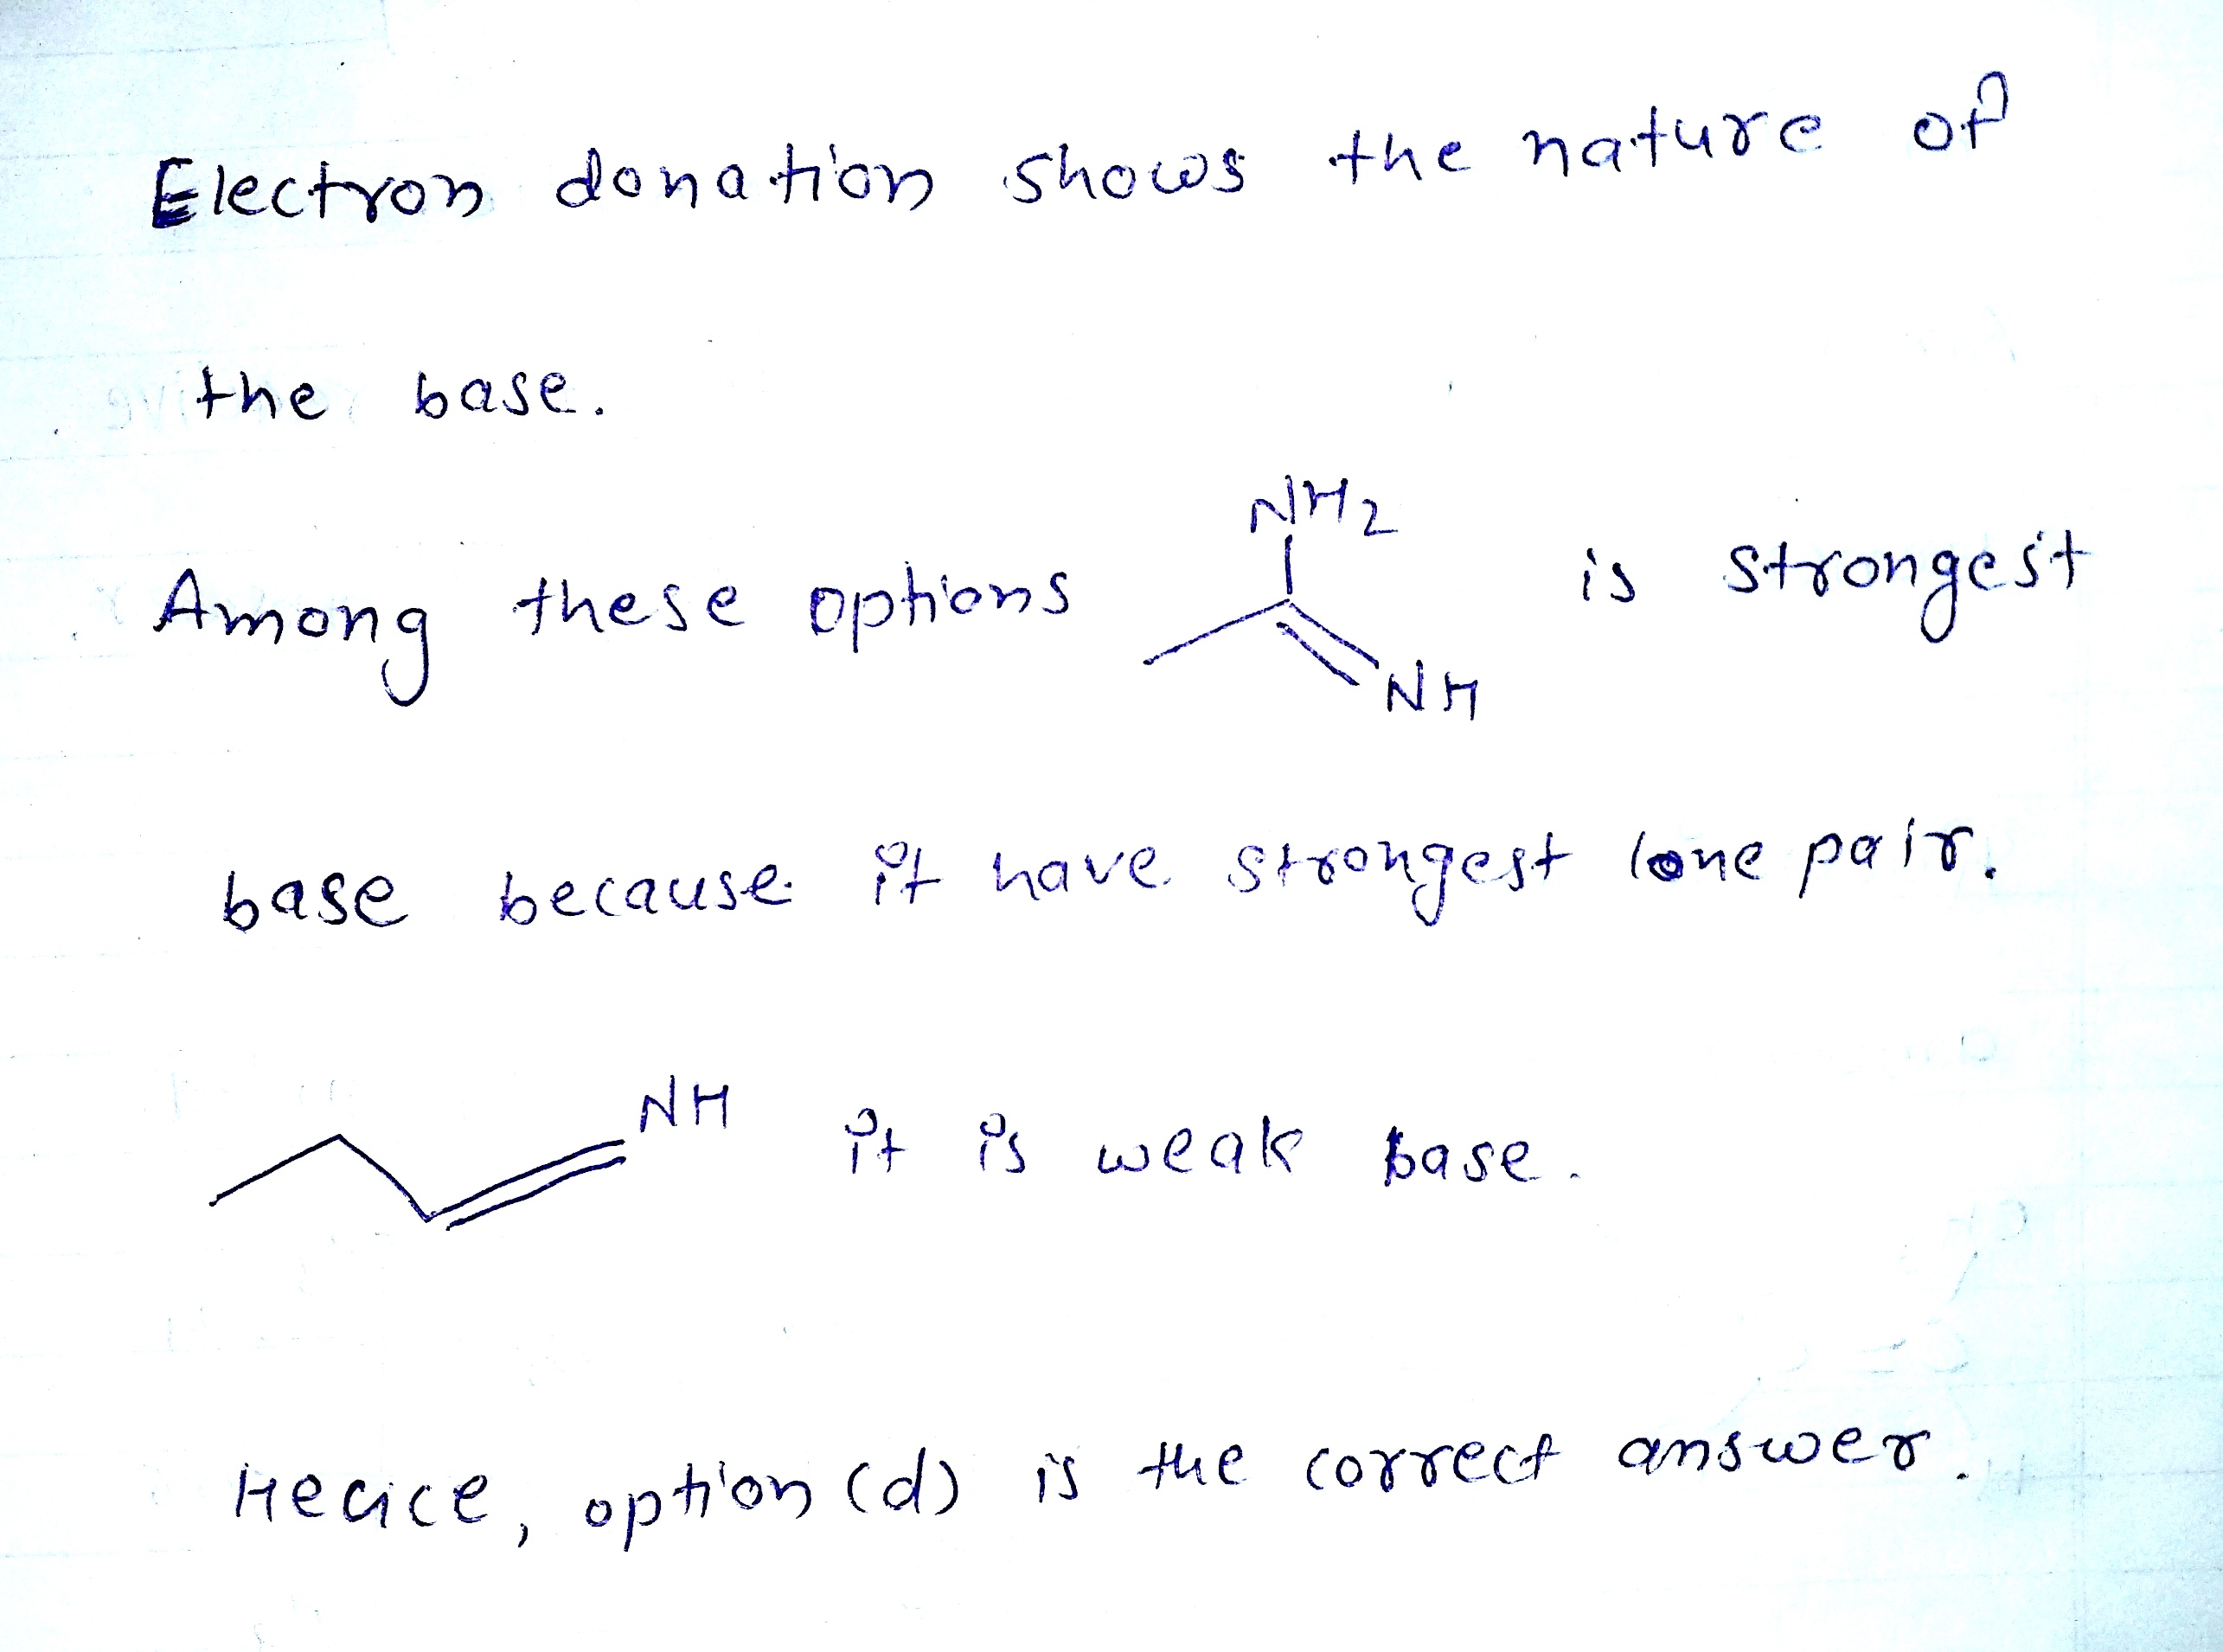 Electron donation shows the nature of
the base.
NH2
Among these options is strongest
NH
base because it have strongest lone pair.
NH it is weak base.
Hence, option (d) is the correct answer.